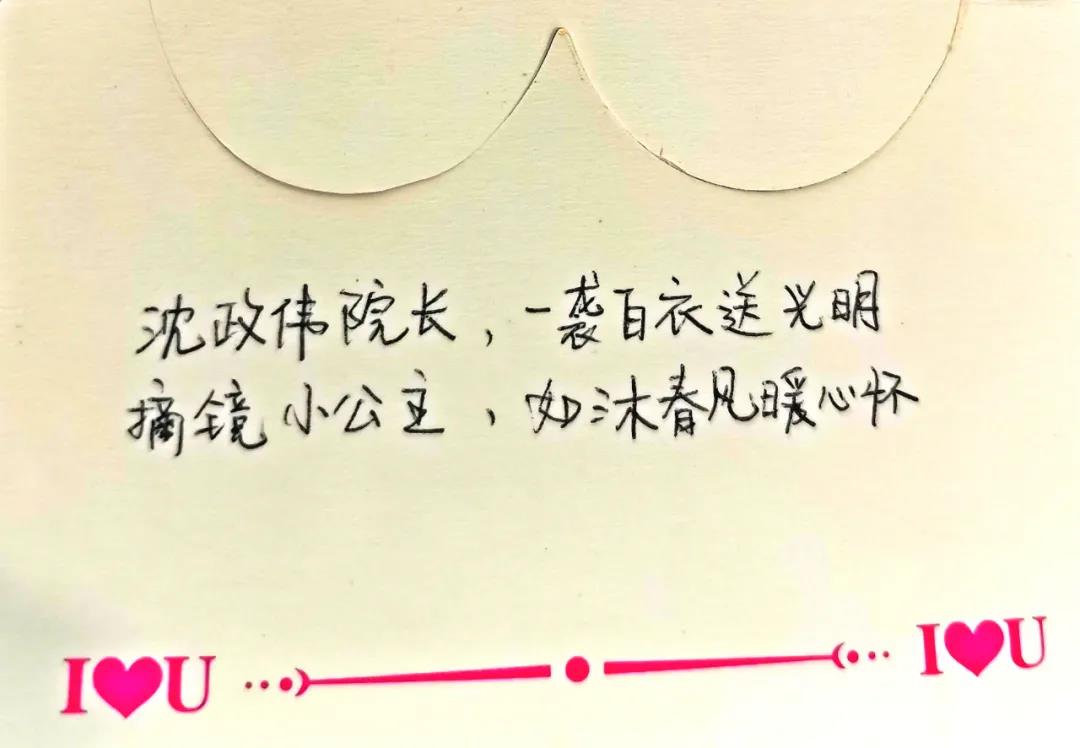 沈政伟院长，一袭白衣送光明
摘镜小公主，如沐春风暖心怀
I♥U I♥U